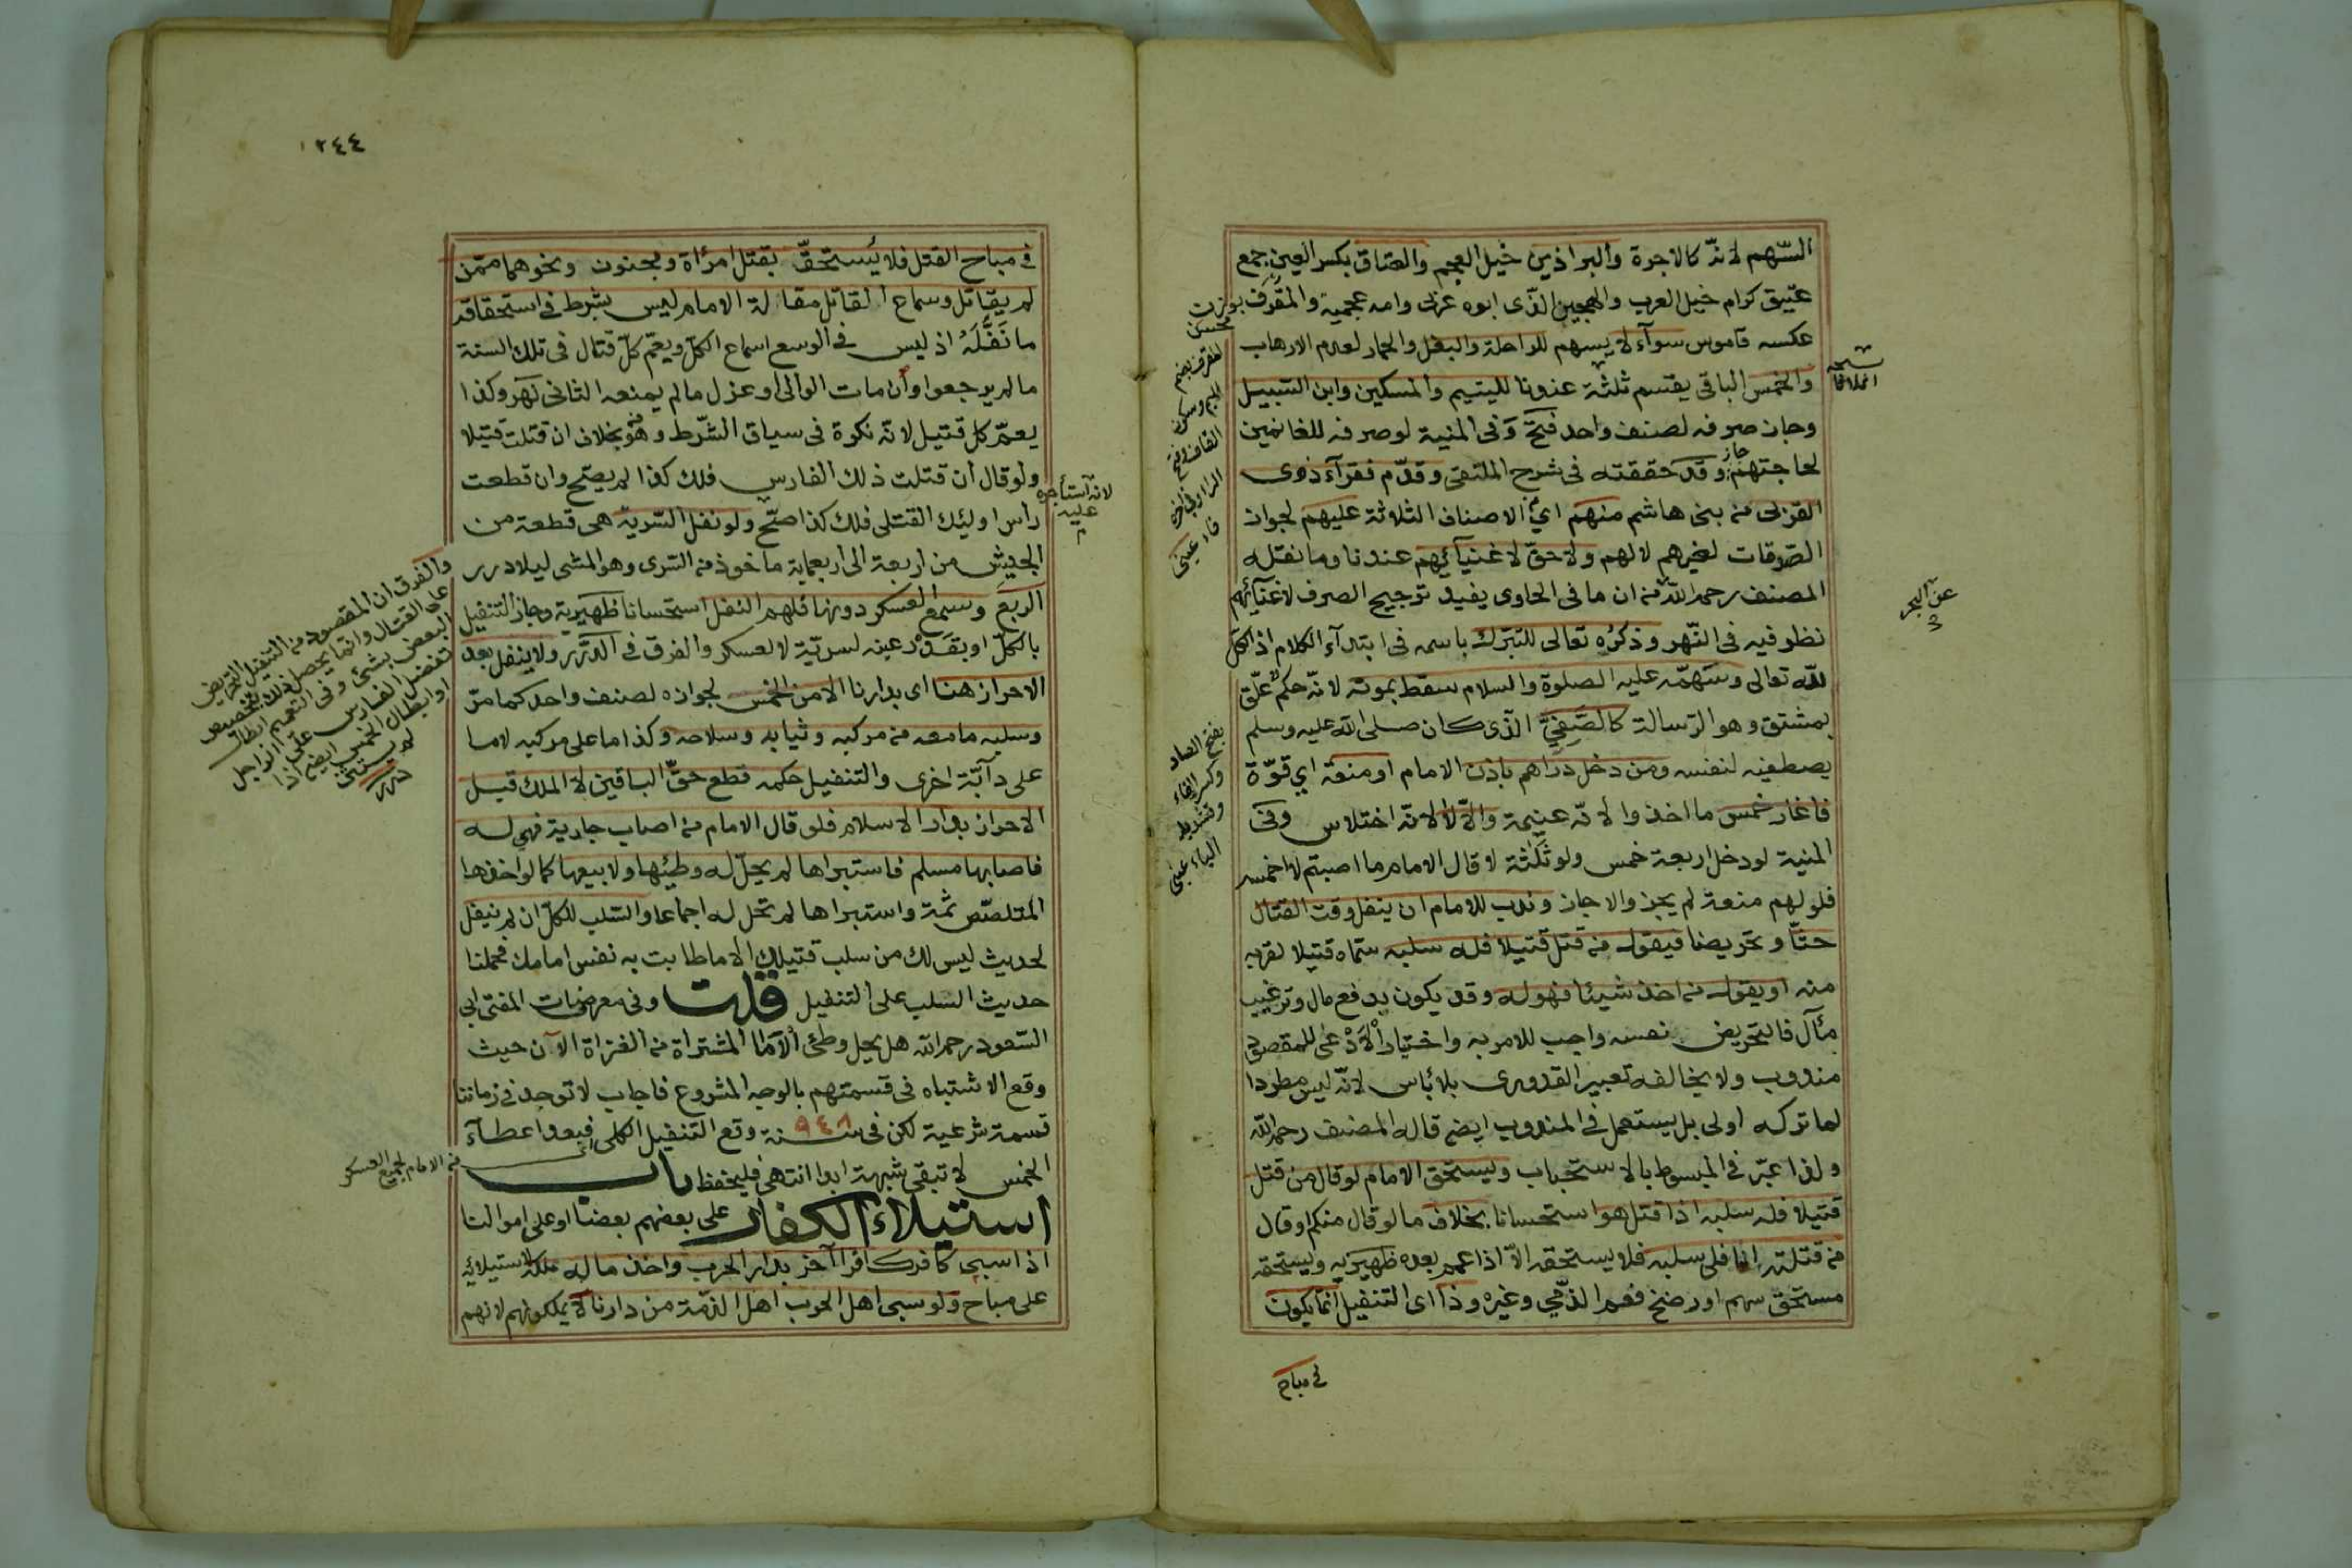 السّهم لانّه كالاجرة والبراذين خيل العجم والعتاق بكسر العين جمع
عتيق كرام خيل العرب والهجين الذى ابوه عربى وامه عجمية والمقرف
بوزن محسن
عكسه قاموس سوآء لا يسهم للراحلة والبغل والحمار لعدم الارهاب
والخمس الباقى يقسم ثلثة عندنا لليتيم والمسكين وابن السبيل
وجاز صرفه لصنف واحد فتح وفى المنية لو صرفه للغانمين
لحاجتهم جاز وقد حققته فى شرح الملتقى وقدّم فقرآء ذوى
القربى من بنى هاشم منهم اى الاصناف الثلاثة عليهم لجواز
الصدقات لغيرهم لا لهم ولا حقّ لاغنيآئهم عندنا وما نقله
المصنف رحمه الله من ان ما فى الحاوى يفيد ترجيح الصرف لاغنيآئهم
نظر فيه فى النّهر وذكره تعالى للتبرّك باسمه فى ابتدآء الكلام اذ الكل
لله تعالى وسهمه عليه الصلوة والسلام سقط بموته لانّه حكم علّق
بمشتق وهو الرّسالة كالصّفىّ الّذى كان صلى الله عليه وسلم
يصطفيه لنفسه ومن دخل دارهم باذن الامام او منعة اى قوّة
فاغار خمس ما اخذوا لانّه غنيمة والّا لا لانّه اختلاس وفى
المنية لو دخل اربعة خمس ولو ثلاثة لا قال الامام ما اصبتم لا اخمسه
فلو لهم منعة لم يجز والا جاز وندب للامام ان ينفل وقت القتال
حثّا وتحريضا فيقول من قتل قتيلا فله سلبه سمّاه قتيلا لقربه
منه او يقول من اخذ شيئا فهو له وقد يكون بدفع مال وترغيب
مآل فالتحريض نفسه واجب للامر به واختيار الادعى للمقصود
مندوب ولا يخالفه تعبير القدورى بلا بأس لانّه ليس مطردا
لما تركه اولى بل يستعمل فى المندوب ايضا قاله المصنف رحمه الله
ولذا عبّر فى المبسوط بالاستحباب ويستحق الامام لو قال من قتل
قتيلا فله سلبه اذا قتل هو استحسانا بخلاف ما لو قال منكم او قال
من قتلته انا فلى سلبه فلا يستحقه الّا اذا عمم بعده ظهيرية ويستحقه
مستحق سهم او رضخ فعم الذمّى وغيره وذا اى التنفيل انما يكون
فى مباح
المقرف بضم
الميم وسكون
القاف وفتح
الراء وفى آخره
فاء عينى
بفتح الصاد
وكسر الفاء
وتشديد
الياء عينى
عن البحر
١٢٤٤
فى مباح القتل فلا يُستحقّ بقتل امرأة ومجنون ونحوهما ممّن
لم يقاتل وسماع القاتل مقالة الامام ليس بشرط فى استحقاقه
ما نَفَّلَهُ اذ ليس فى الوسع اسماع الكلّ ويعمّ كلّ قتال فى تلك السنة
ما لم يرجعوا وان مات الوالى او عزل ما لم يمنعه الثانى نهر وكذا
يعمّ كل قتيل لانّه نكرة فى سياق الشّرط وهو من بخلاف ان قتلت قتيلا
ولو قال ان قتلت ذلك الفارس فلك كذا لم يصحّ وان قطعت
رأس اولئك القتلى فلك كذا صحّ ولو نفل السّريّة هى قطعة من
الجيش من اربعة الى اربعماية ماخوذ من السّرى وهو المشى ليلا درر
الربع وسمع العسكر دونها فلهم النفل استحسانا ظهيرية وجاز التنفيل
بالكلّ او بقدر عينه لسريّة لا لعسكر والفرق فى الدّرر ولا ينفل بعد
الاحراز هنا اى بدارنا الا من الخمس لجوازه لصنف واحد كما مرّ
وسلبه ما معه من مركبه وثيابه وسلاحه وكذا ما على مركبه لا ما
على دآبّة اخرى والتنفيل حكمه قطع حقّ الباقين لا الملك قبل
الاحراز بدار الاسلام فلو قال الامام من اصاب جارية فهى له
فاصابها مسلم فاستبراها لم يحلّ له وطئها ولا بيعها كما لو اخذها
المتلصّص ثمّة واستبراها لم تحل له اجماعا والسّلب للكلّ ان لم ينفل
لحديث ليس لك من سلب قتيلك الا ما طابت به نفس امامك فحملنا
حديث السلب على التنفيل قلت وفى معروضات المفتى ابى
السّعود رحمه الله هل يحل وطئ الاما المشتراة من الغزاة الآن حيث
وقع الاشتباه فى قسمتهم بالوجه المشروع فاجاب لا توجد فى زماننا
قسمة شرعية لكن فى سنة ٩٤٨ وقع التنفيل الكلى فبعد اعطآء
الخمس لا تبقى شبهة ابدا انتهى فليحفظ باب
استيلاء الكفار على بعضهم بعضا او على اموالنا
اذا سبى كافر كافرا آخر بدار الحرب واخذ ماله ملكه لاستيلائه
على مباح ولو سبى اهل الحرب اهل الذمّة من دارنا لا يملكونهم لانهم
لانه استأجره
عليه
والفرق ان المقصود من التنفيل التحريض
على القتال وانما يحصل ذلك بتخصيص
البعض بشئ وفى التعميم ابطال
تفضيل الفارس على الراجل
او ابطال الخمس ايضا اذا
لم يستثن
درر
من الامام لجميع العسكر